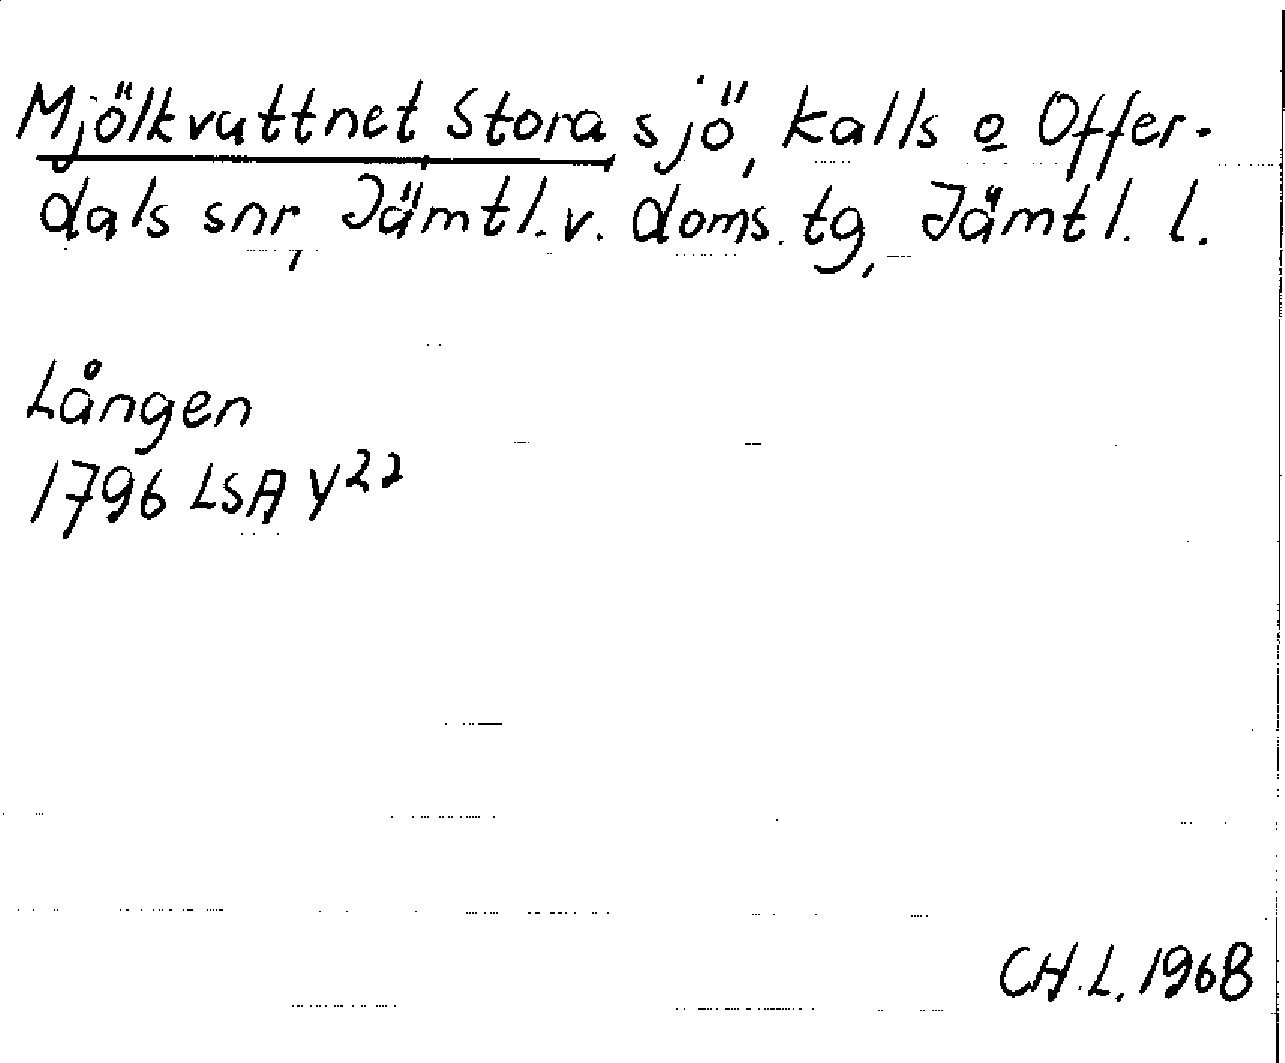 Mjölkvattnet Stora sjö, Kalls o Offer-
dals snr, Jämtl. v. doms. tg, Jämtl. l.
Lången
1796 LSA Y22
CH. L. 1968